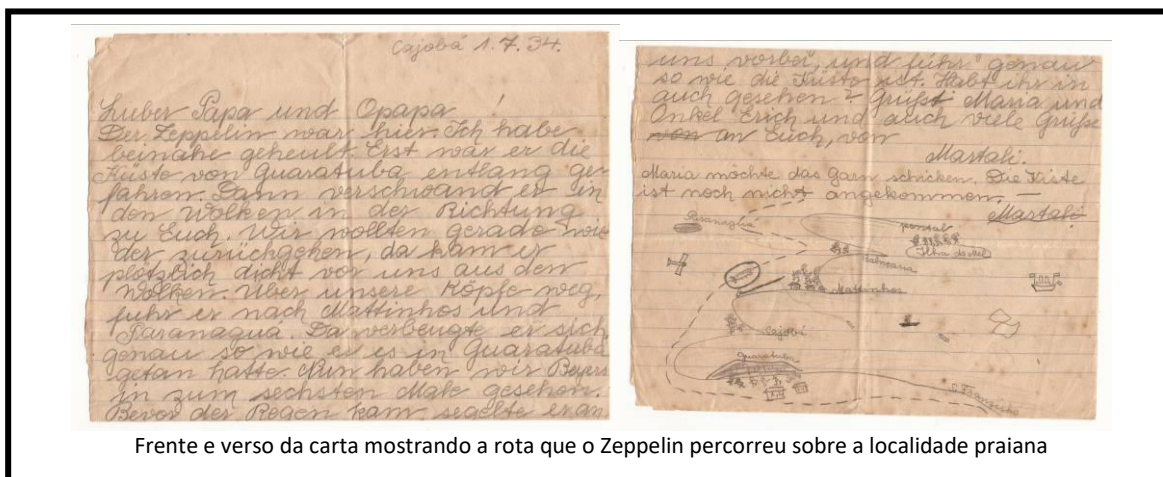 Cajobá 1.7.34.
Lieber Papa und Opapa !
Der Zeppelin war hier. Ich habe
beinahe geheult. Erst war er die
Küste von Guaratuba entlang ge
fahren. Dann verschwand er in
den Wolken in der Richtung
zu Euch. Wir wollten gerade wie
der zurückgehen, da kam er
plötzlich dicht vor uns aus den
Wolken. Über unsere Köpfe weg,
fuhr er nach Mattinhos und
Paranagua. Da verbeugte er sich
genau so wie er es in Guaratuba
getan hatte. Nun haben wir Beyers
in zum sechsten Male gesehen.
Bevor der Regen kam segelte er an
uns vorbei, und fuhr genau
so wie die Küste ist. Habt ihr in
auch gesehen? Grüßt Maria und
Onkel Erich und auch viele Grüße
von an Euch, von
Martali.
Maria möchte das Garn schicken. Die Kiste
ist noch nicht angekommen.
Martali
Paranaguá
pontal
Ilha do Mel
Mattinhos
Cajobá
Guaratuba
S. Francisko
Frente e verso da carta mostrando a rota que o Zeppelin percorreu sobre a localidade praiana